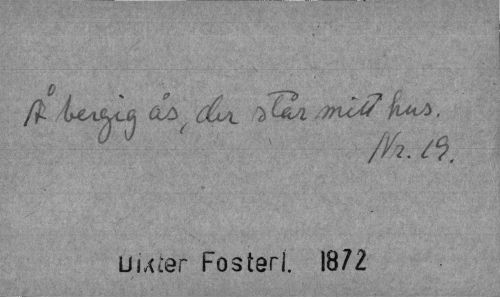 Å bergig ås, der står mitt hus.
Nr. 19.
Dikter Fosterl. 1872